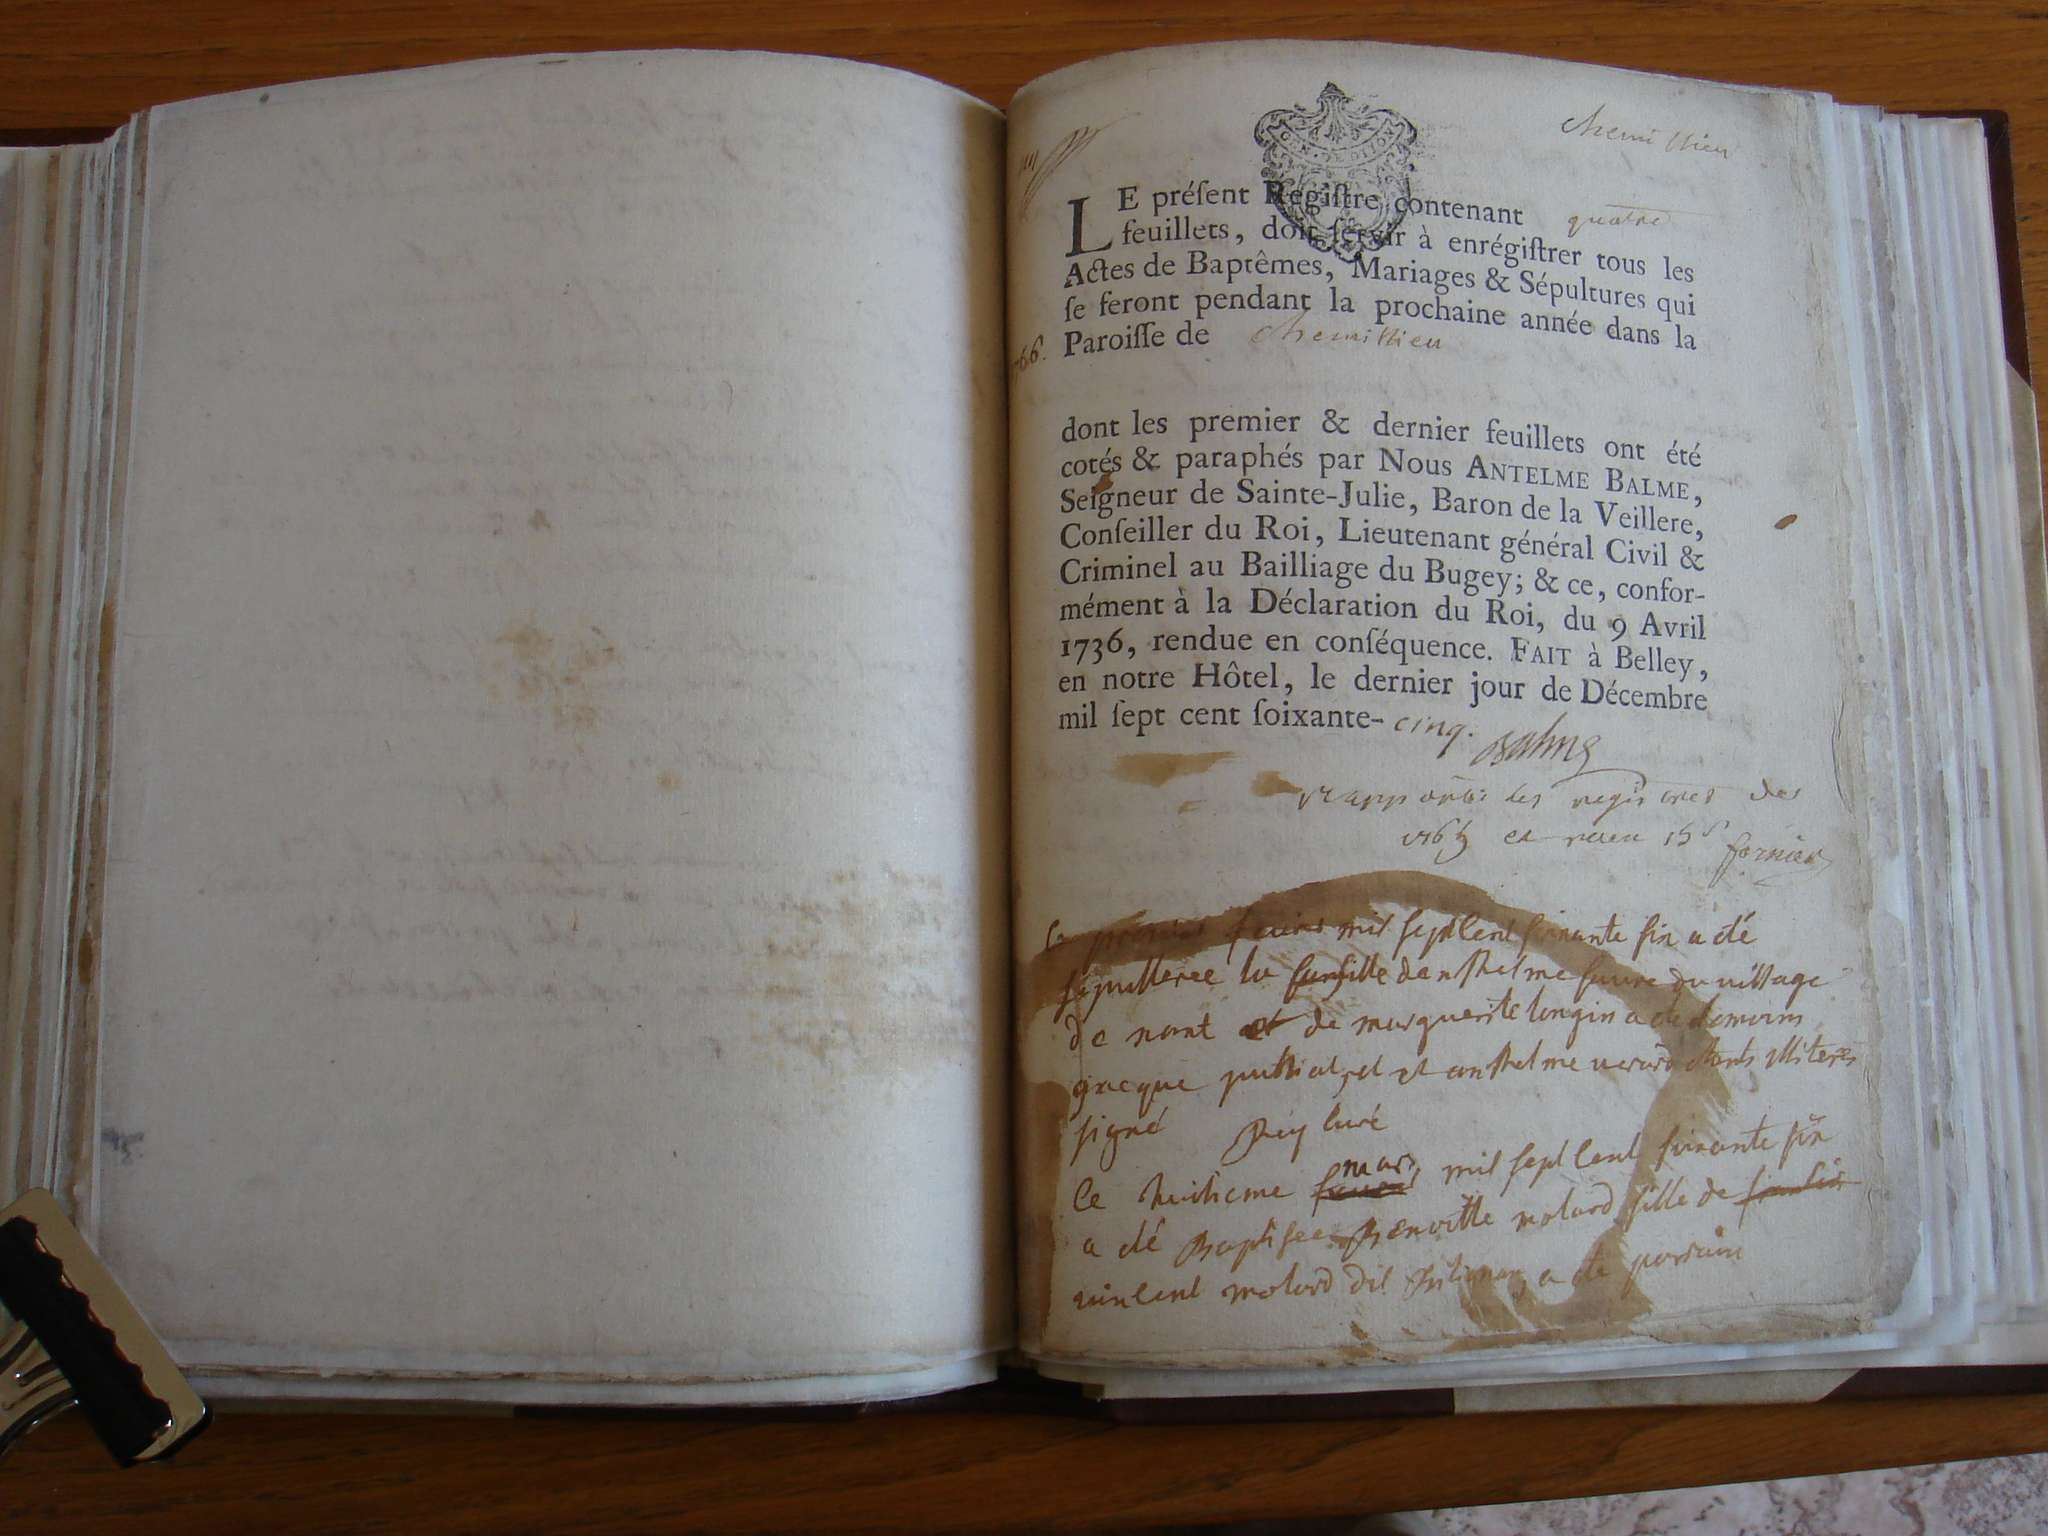 chemillieu
GEN. DE DIJON
LE préſent Regiſtre contenant quatre
feuillets, doit ſervir à enrégiſtrer tous les
Actes de Baptêmes, Mariages & Sépultures qui
ſe feront pendant la prochaine année dans la
1766.
Paroiſſe de chemillieu
dont les premier & dernier feuillets ont été
cotés & paraphés par Nous ANTELME BALME,
Seigneur de Sainte-Julie, Baron de la Veillere,
Conſeiller du Roi, Lieutenant général Civil &
Criminel au Bailliage du Bugey; & ce, confor-
mément à la Déclaration du Roi, du 9 Avril
1736, rendue en conſéquence. FAIT à Belley,
en notre Hôtel, le dernier jour de Décembre
mil ſept cent ſoixante- cinq.
Balme
les registres des
1765 et receu 15ˢ
Le premier mil sept cent soixante six a été
sepulteree la fille danthelme du village
de nant et de marguerite longin a été
jacque et anthelme illiteres
signé curé
le huitieme mars mil sept cent soixante six
a été Baptisee Benoitte molard fille de
vincent molard dit a été parrain